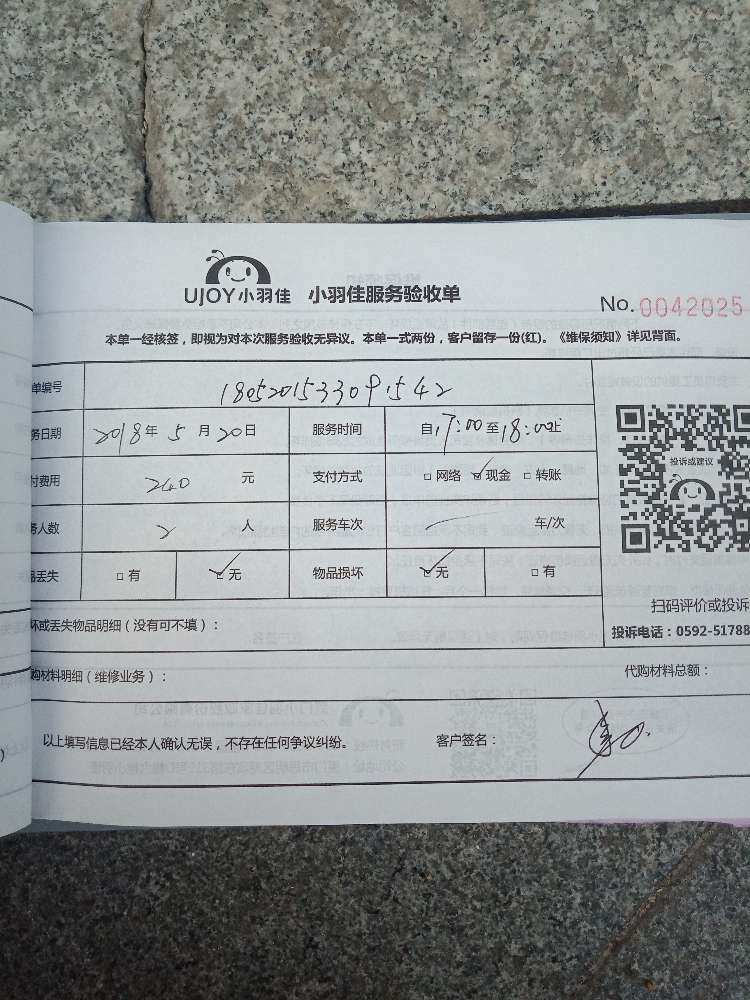 UJOY小羽佳 小羽佳服务验收单
No. 0042025
本单一经核签，即视为对本次服务验收无异议。本单一式两份，客户留存一份(红)。《维保须知》详见背面。
单编号
务日期 2018年 5月 20日 服务时间 自17:00至18:00止
付费用 240 元 支付方式 □网络 ☑现金 □转账
务人数 2 人 服务车次 车/次
品丢失 □有 ☑无 物品损坏 ☑无 □有
投诉或建议
扫码评价或投诉
投诉电话：0592-51788
坏或丢失物品明细（没有可不填）：
购材料明细（维修业务）： 代购材料总额：
以上填写信息已经本人确认无误，不存在任何争议纠纷。 客户签名：